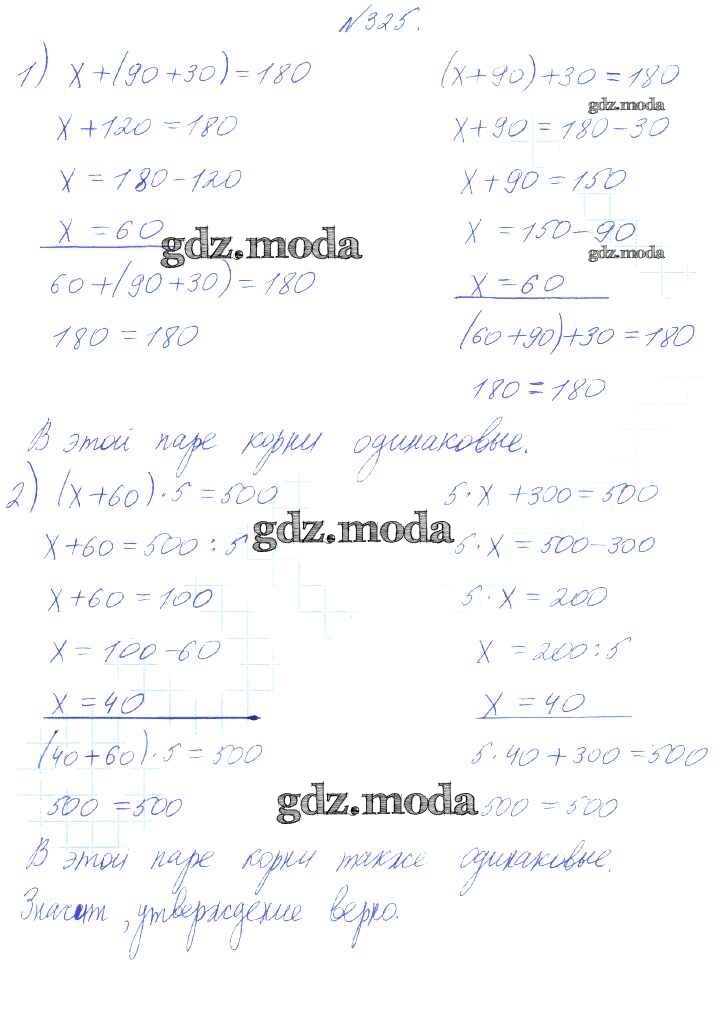 №325.
1) x+(90+30)=180
x+120=180
x=180-120
x=60
60+(90+30)=180
180=180
(x+90)+30=180
gdz.moda
x+90=180-30
x+90=150
x=150-90
gdz.moda
x=60
(60+90)+30=180
180=180
gdz.moda
В этой паре корни одинаковые.
2) (x+60)·5=500
x+60=500:5
x+60=100
x=100-60
x=40
(40+60)·5=500
500=500
5·x+300=500
gdz.moda
5·x=500-300
5·x=200
x=200:5
x=40
5·40+300=500
500=500
gdz.moda
В этой паре корни также одинаковые.
Значит, утверждение верно.